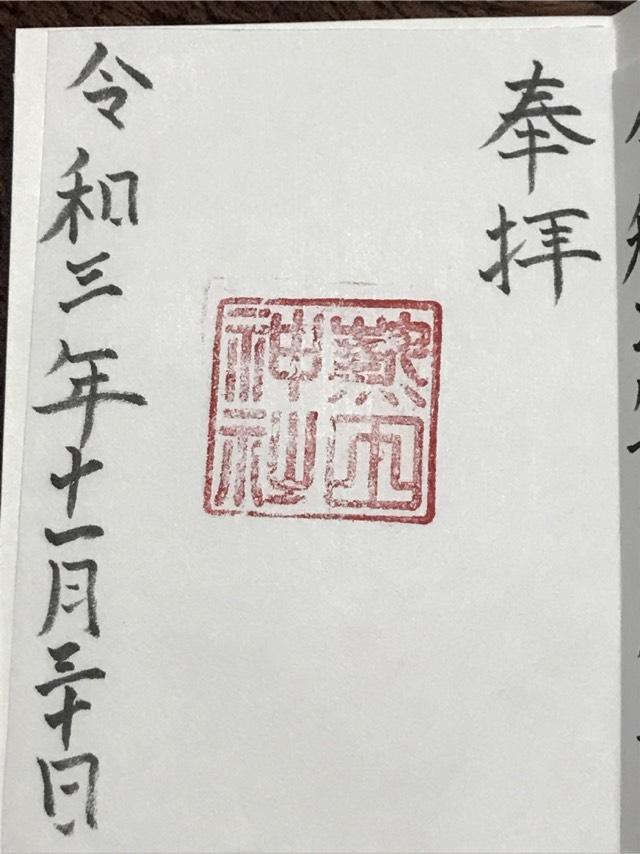 奉拝
神社
令和三年十一月三十日